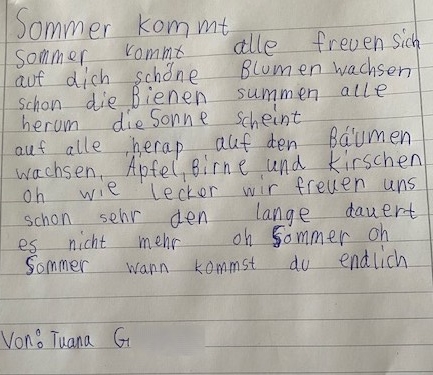 Sommer kommt
Sommer kommt alle freuen sich
auf dich schöne Blumen wachsen
schon die Bienen summen alle
herum die Sonne scheint
auf alle herap auf den Bäumen
wachsen, Äpfel, Birne und Kirschen
oh wie lecker wir freuen uns
schon sehr den lange dauert
es nicht mehr oh Sommer oh
Sommer wann kommst du endlich
Von: Tuana G